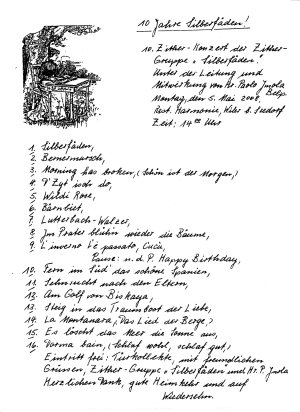 10 Jahre Silberfäden!
10. Zither-Konzert der Zither-
Gruppe "Silberfäden"
Unter der Leitung und
Mitwirkung von Hr. Paolo Imola
Montag, den 5. Mai 2008, Belp
Rest. Harmonie, Wiler b. Seedorf
Zeit: 14⁰⁰ Uhr
1. Silberfäden,
2. Bernermarsch,
3. Morning has broken, (Schön ist der Morgen,)
4. D'Zyt isch do,
5. Wildi Rose,
6. Bärnbiet,
7. Lutterbach-Walzer,
8. Im Prater blüh'n wieder die Bäume,
9. L'inverno l'é passato, Cucù,
Pause: u.d.P. Happy Birthday,
10. Fern im Süd' das schöne Spanien,
11. Sehnsucht nach den Eltern,
12. Am Golf von Biskaya,
13. Steig in das Traumboot der Liebe,
14. La Montanara, (Das Lied der Berge,)
15. Es löscht das Meer die Sonne aus,
16. Dorma bain, (Schlaf wohl, schlaf gut)
Eintritt frei: Tierkollekte, mit freundlichen
Grüssen, Zither-Gruppe "Silberfäden" und Hr. P. Imola
Herzlichen Dank, gute Heimkehr und auf
Wiedersehn.